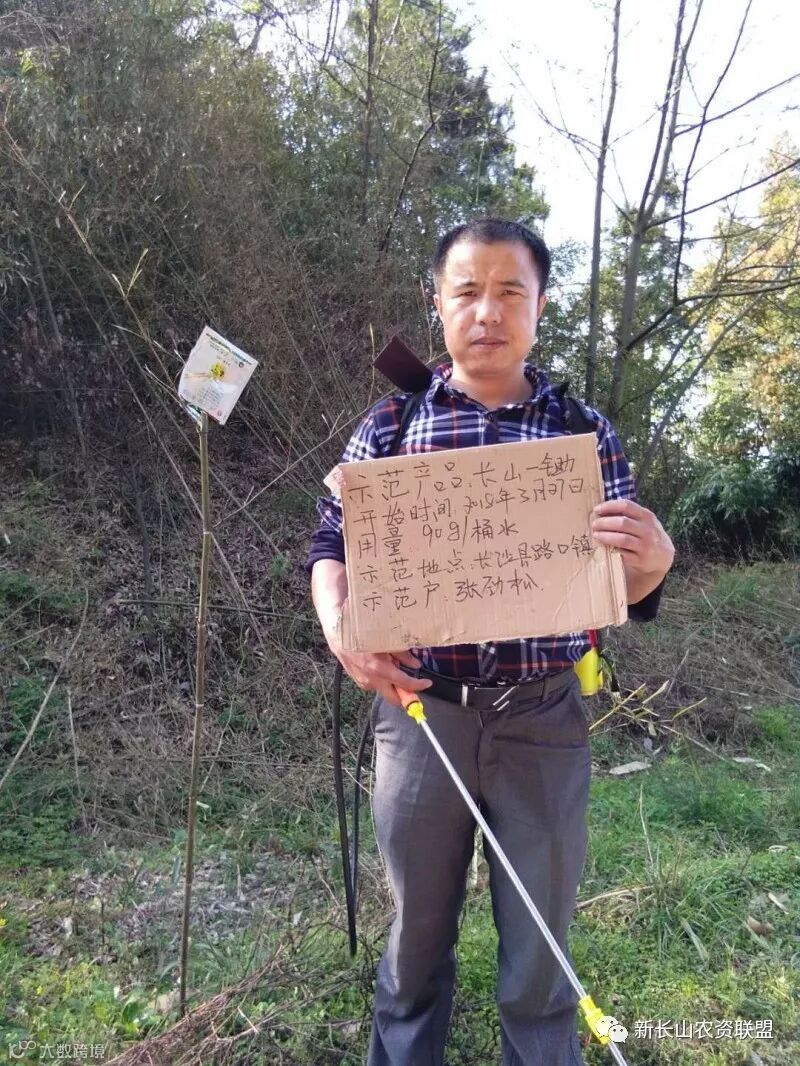 示范产品:长山一锄助
开始时间:2018年3月27日
用量:90g/桶水
示范地点:长沙县路口镇
示范户:张劲松
新长山农资联盟
大数跨境